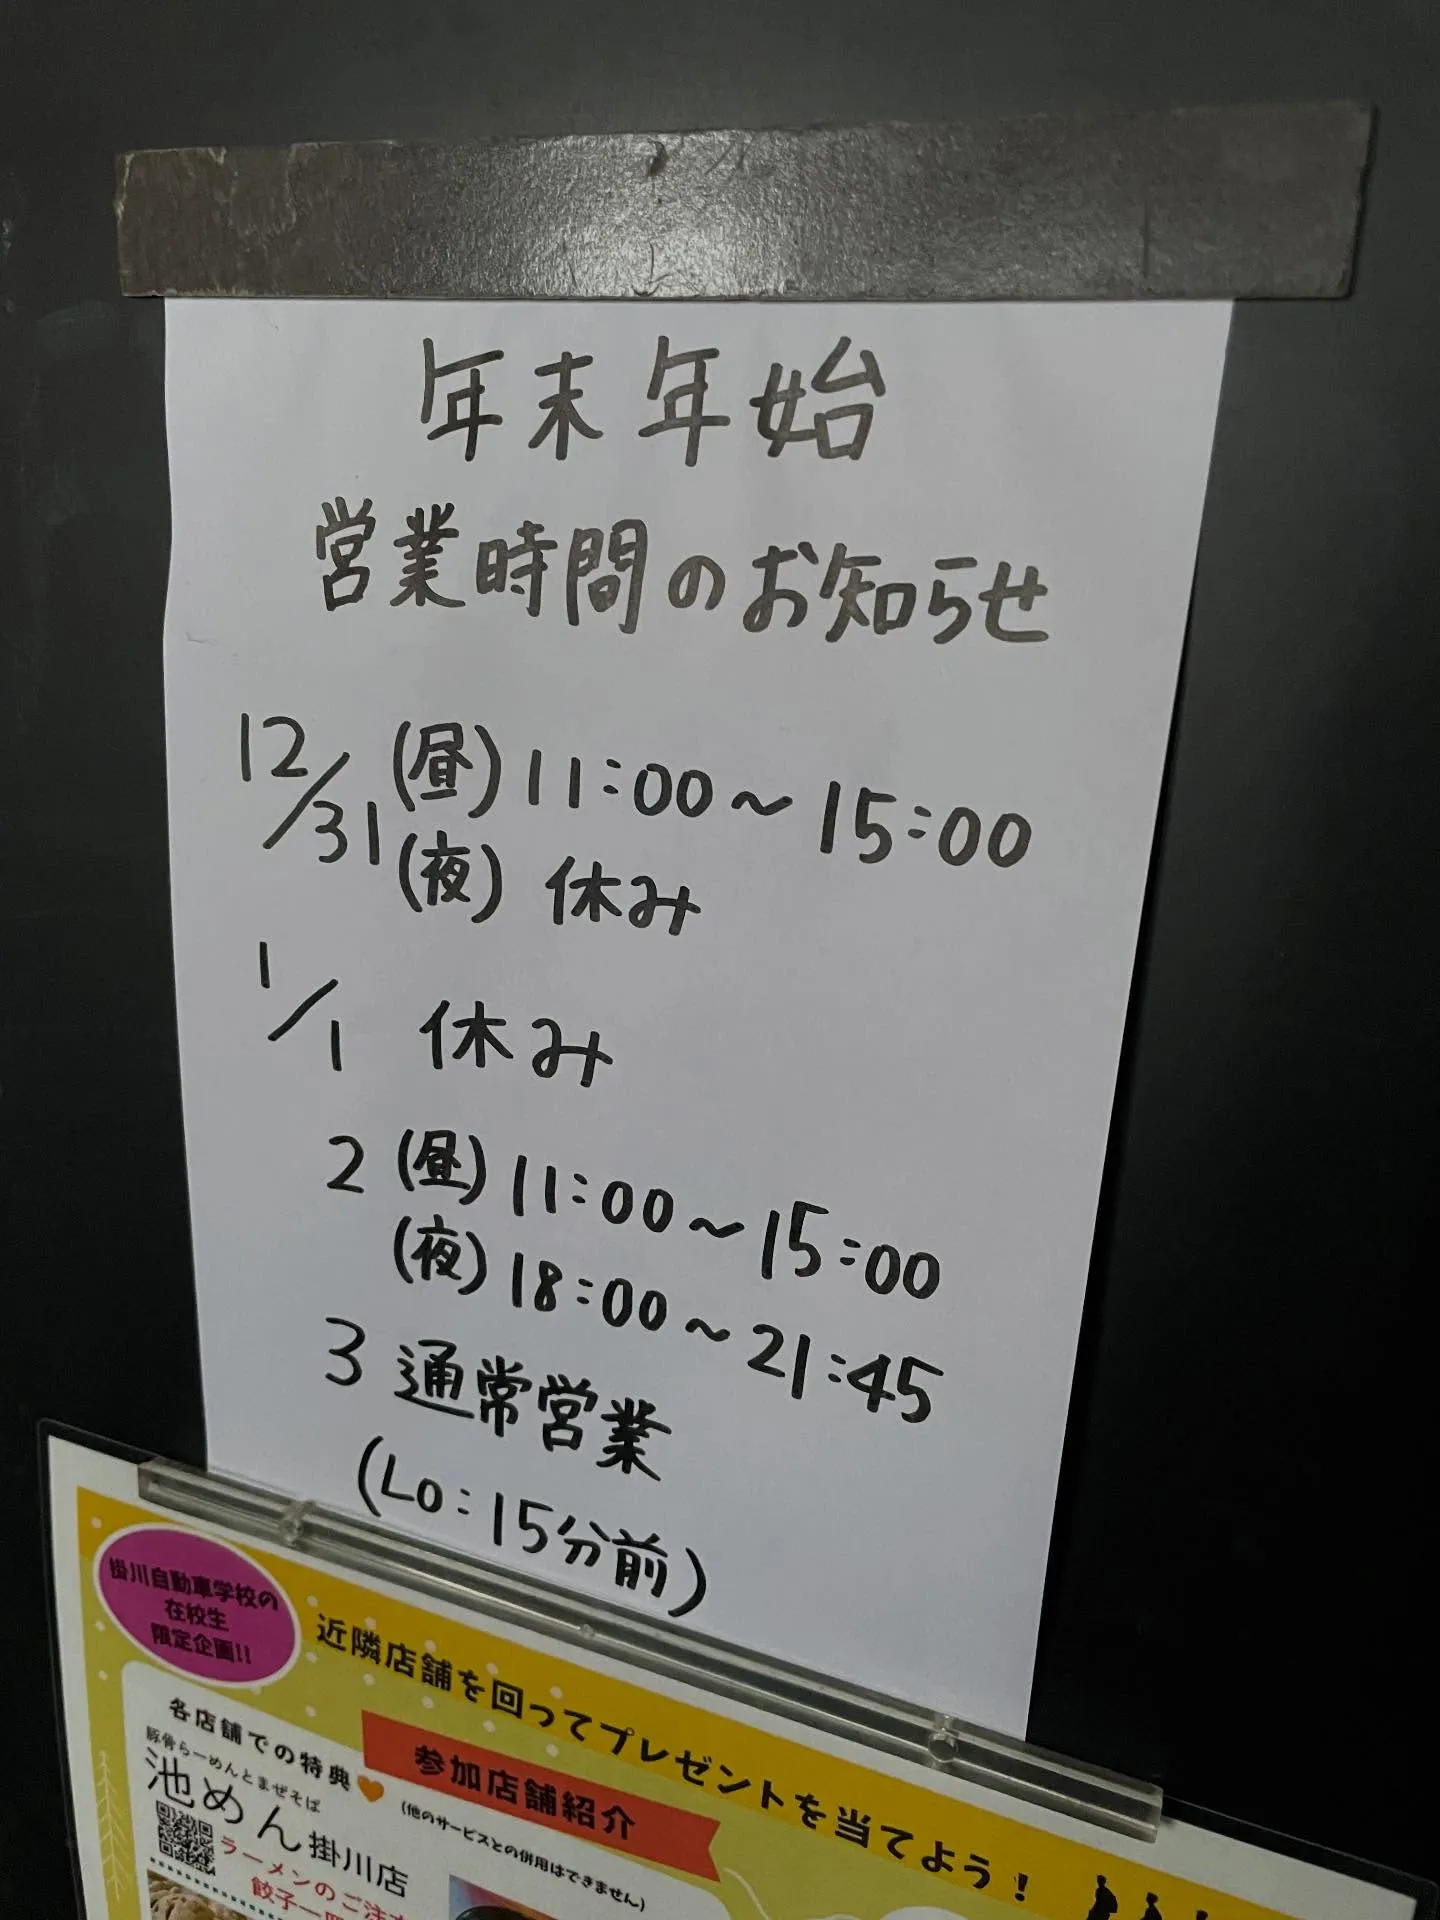 年末年始
営業時間のお知らせ
12/31 (昼) 11:00~15:00
(夜) 休み
1/1 休み
2 (昼) 11:00~15:00
(夜) 18:00~21:45
3 通常営業
(LO:15分前)
掛川自動車学校の
在校生
限定企画!!
近隣店舗を回ってプレゼントを当てよう!
各店舗での特典
参加店舗紹介
(他のサービスとの併用はできません)
豚骨らーめんとまぜそば
池めん掛川店
ラーメンのご注
餃子一